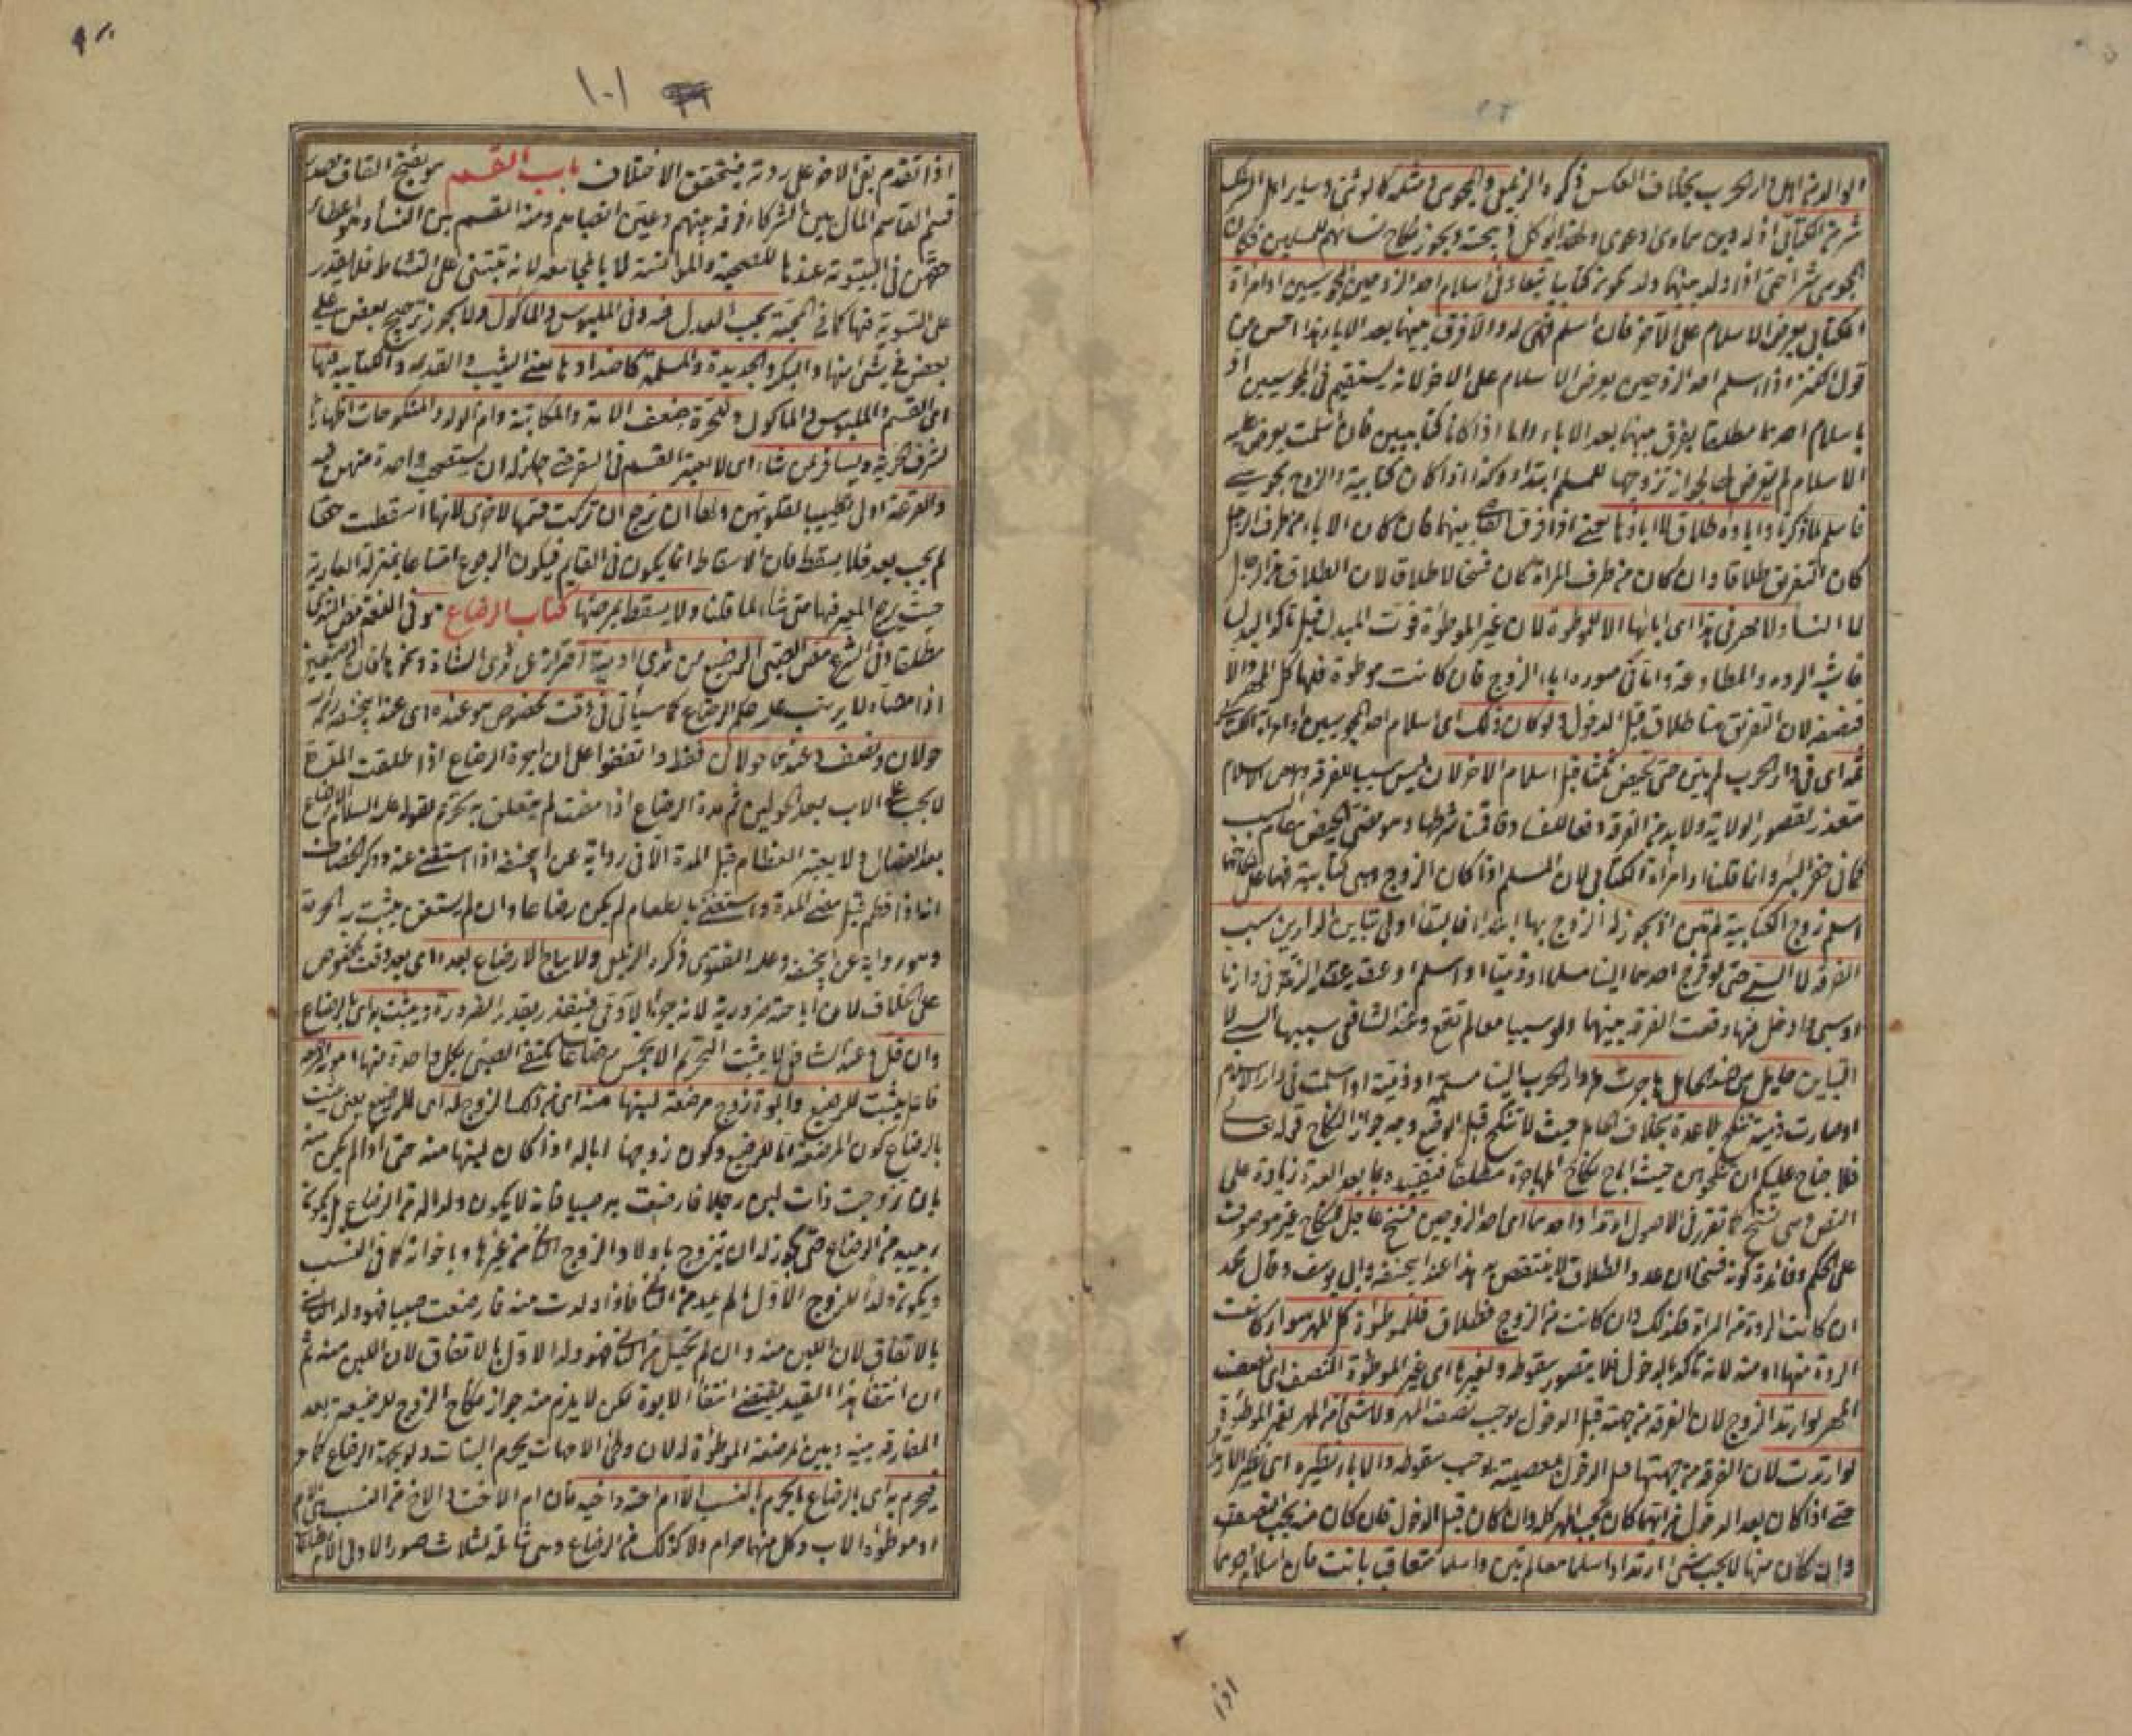 ١٠١
الوالد من اهل دار الحرب بخلاف العكس ذكره الزيلعي والمجوسي ومثله كالوثني وسائر اهل الشرك
شر من الكتابي اذ له دين سماوي دعوى ولهذا يؤكل ذبيحته ويجوز نكاح نسائهم للمسلمين فكان
المجوسي شرا حتى اذا ولد بينهما ولد يكون كتابيا تبعا وفي اسلام احد الزوجين المجوسيين او امرأة
الكتابي يعرض الاسلام على الآخر فان اسلم فهي له والا فرق بينهما بعد الاباء هذا احسن من
قول الكنز اذا اسلم احد الزوجين يعرض الاسلام على الاخر لانه يستقيم في المجوسيين اذ
باسلام احدهما مطلقا يفرق بينهما بعد الاباء واما اذا كانا كتابيين فان اسلمت يعرض عليه
الاسلام لم يتعرض لها لجواز تزوجها للمسلم ابتداء وكذا اذا كان كتابية والزوج مجوسي
فاسلم لما ذكرنا واباؤه طلاق لا اباؤها يعني اذا فرق القاضي بينهما فان كان الاباء من طرف الرجل
كان التفريق طلاقا وان كان من طرف المرأة كان فسخا لا طلاق لان الطلاق من الرجال
لا النساء ولا مهر في هذا اى ابائها الا للموطوءة لان غير الموطوءة فوتت المبدل قبل تاكد البدل
فاشبه الردة والمطاوعة واما في صورة اباء الزوج فان كانت موطوءة فلها كل المهر والا
فنصفه لان التفريق هنا طلاق قبل الدخول ولو كان ذلك اى اسلام احد المجوسيين او امرأة الكتابي
ثمه اى في دار الحرب لم تبن حتى تحيض ثلثا قبل اسلام الاخر لان ليس سببا للفرقة وعرض الاسلام
متعذر لقصور الولاية ولا بد من الفرقة دفعا للفساد فاقمنا شرطها وهو مضى الحيض مقام السبب
كما في حفر البئر وانما قلنا او امرأة الكتابي لان المسلم اذا كان الزوج وهي كتابية فهما على نكاحهما
اسلم زوج الكتابية لم تبن اذ يجوز له التزوج بها ابتداء فالبقاء اولى تباين الدارين سبب
الفرقة لا السبي حتى لو خرج احدهما الينا مسلما او ذميا او اسلم او عقد عقد الذمة في دارنا
او سبي وادخل فيها وقعت الفرقة بينهما ولو سبيا معا لم تقع وعند الشافعي سببها السبي لا
التباين حايل من ضد الحامل هاجرت من دار الحرب الينا مسلمة او ذمية او اسلمت في دار الاسلام
او صارت ذمية تنكح بلا عدة بخلاف الحامل حيث لا تنكح قبل الوضع وجه جواز النكاح قوله تعالى
فلا جناح عليكم ان تنكحوهن حيث اباح نكاح المهاجرة مطلقا فتقييده بما بعد العدة زيادة على
النص وهي نسخ كما تقرر في الاصول ارتداد احدهما اى احد الزوجين فسخ عاجل للنكاح غير موقوف
على الحكم وفائدة كونه فسخا ان عدد الطلاق لا ينتقص به هذا عند ابي حنيفة وابي يوسف وقال محمد
ان كانت الردة من المرأة فكذلك وان كانت من الزوج فطلاق فللموطوءة كل المهر سواء كانت
الردة منها او منه لانه تاكد بالدخول فلا يتصور سقوطه ولغيرها اى غير الموطوءة النصف اى نصف
المهر لو ارتد الزوج لان الفرقة من جهته قبل الدخول يوجب نصف المهر ولا شئ من المهر لغير الموطوءة
لو ارتدت لان الفرقة من جهتها قبل الدخول معصية يوجب سقوطه والاباء نظيره اى نظير الارتداد
حتى اذا كان بعد الدخول من ايهما كان يجب المهر كله وان كان قبل الدخول فان كان منه يجب النصف
وان كان منها لا يجب شئ ارتدا واسلما معا لم تبن واسلما متعاقبا بانت فان اسلام احدهما
اذا
اذا تقدم بقي الاخر على ردته فيتحقق الاختلاف باب القسم هو بفتح القاف مصدر
قسم القاسم المال بين الشركاء فرقه بينهم وعين انصباءهم ومنه القسم بين النساء وهو اعطاء
حقهن في البيتوتة عندها للصحبة والمؤانسة لا بالمجامعة لانه تبتنى على النشاط فلا يقدر
على التسوية فيها كما في المحبة يجب العدل فيه وفي الملبوس والمأكول ولا يجوز ترجيح بعض على
بعض في شئ منها والبكر والجديدة والمسلمة كاضدادها يعني الثيب والقديمة والكتابية فيها
اى القسم والملبوس والمأكول وللحرة ضعف الامة والمكاتبة وام الولد والمنكوحات اظهارا
لشرف الحرية ويسافر بمن شاء اى لا يعتبر القسم في السفر حتى جاز له ان يستصحب واحدة منهن فيه
والقرعة اولى تطييبا لقلوبهن ولها ان ترجع ان تركت قسمها لاخرى لانها اسقطت حقا
لم يجب بعد فلا يسقط فان الاسقاط انما يكون في القايم فيكون الرجوع امتناعا بمنزلة العارية
حيث يرجع المعير فيها متى شاء لما قلنا ولا يسقط بمرضها كتاب الرضاع هو في اللغة مص الثدي
مطلقا وفي الشرع مص الصبي الرضيع من ثدي آدمية احترازا عن ثدي الشاة ونحوها فان الرضيعين
اذا مصاه لا يترتب عليه حكم الرضاع كما سيأتي في وقت مخصوص هو عنده اى عند ابي حنيفة رحمه الله
حولان ونصف وعندهما حولان فقط واتفقوا على ان اجرة الرضاع اذا طلقت المرأة
لا يجب على الاب بعد الحولين ثم مدة الرضاع اذا مضت لم يتعلق به تحريم لقوله عليه السلام لا رضاع
بعد الفصال ولا يعتبر الفطام قبل المدة الا في رواية عن ابي حنيفة اذا استغنى عنه وذكر الخصاف
انه اذا فطم قبل مضي المدة واستغنى بالطعام لم يكن رضاعا وان لم يستغن يثبت به الحرمة
وهو رواية عن ابي حنيفة وعليه الفتوى ذكره الزيلعي ولا يباح الارضاع بعده اى بعد وقت مخصوص
على الخلاف لان اباحته ضرورية لانه جزء الآدمي فيتقدر بقدر الضرورة ويثبت به اى بالرضاع
وان قل وعند الشافعي لا يثبت التحريم الا بخمس رضاعات يكتفي الصبي بكل واحدة منها امومية المرضعة
فانها يثبت للرضيع وابوة زوج مرضعة لبنها منه اى من ذلك الزوج له اى للرضيع يعني يثبت
بالرضاع كون المرضعة اما للرضيع وكون زوجها ابا له اذا كان لبنها منه حتى اذا لم يكن منه
بان تزوجت ذات لبن رجلا فارضعت به صبيا فانه لا يكون ولدا له من الرضاع بل يكون
ربيبه من الرضاع حتى يجوز له ان يتزوج باولاد الزوج الثاني من غيرها وباخواته كما في النسب
ويكون ولدا للزوج الاول ما لم تلد من الثاني فاذا ولدت منه فارضعت صبيا فهو ولد الثاني
بالاتفاق لان اللبن منه وان لم تحبل من الثاني فهو ولد الاول بالاتفاق لان اللبن منه ثم
ان انتفاء هذا القيد يقتضي انتفاء الابوة لكن لا يلزم منه جواز نكاح الزوج للرضيعة بعد
المفارقة بينه وبين المرضعة الموطوءة له لان وطئ الامهات يحرم البنات ولو بجهة الرضاع كما هو
فيحرم به اى بالرضاع ما يحرم بالنسب الا ام اخته واخيه فان ام الاخت والاخ من النسب هي الام
او موطوءة الاب وكل منهما حرام ولا كذلك من الرضاع وهي شاملة لثلاث صور الاولى الام رضاعا